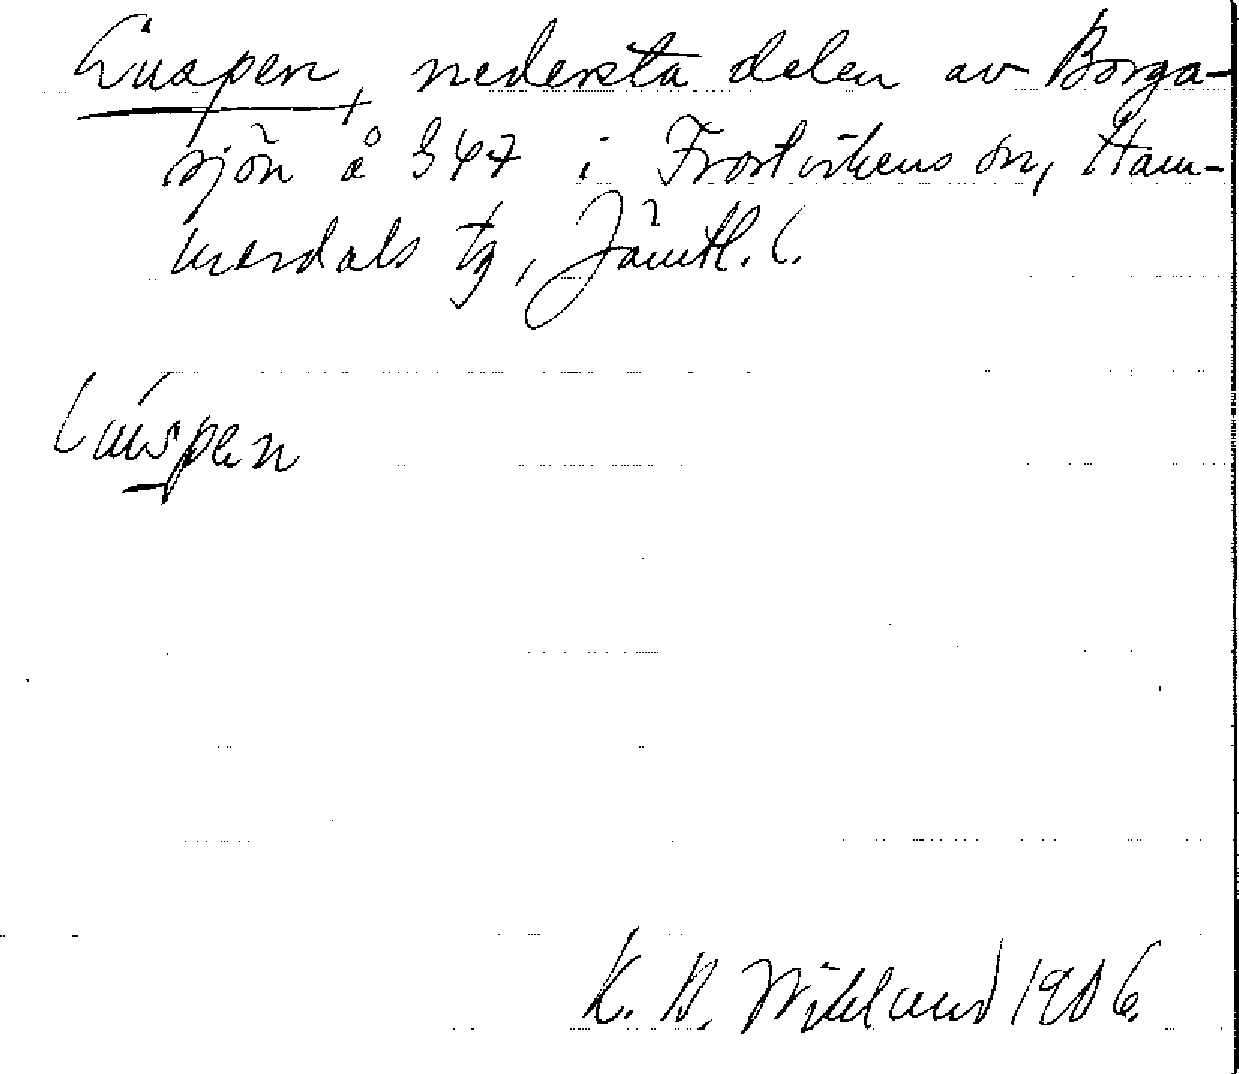 Luspen, nedersta delen av Borga-
sjön å 347 i Frostvikens sn, Ham-
merdals tg, Jämtl. l.
Luspen
K. B. Wiklund 1906.